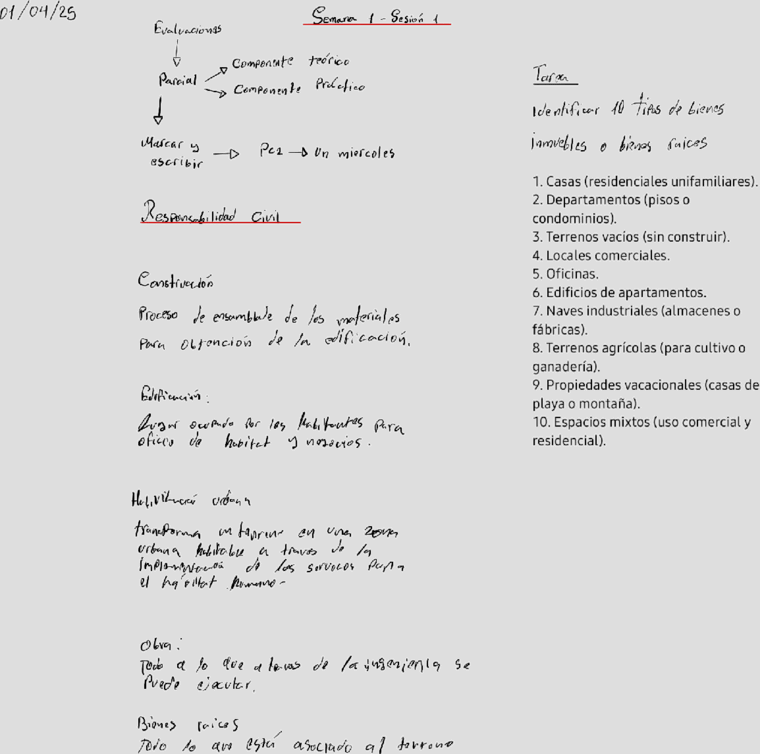 01/04/25
Semana 1 - Sesión 1
Evaluaciones
Parcial
Componente teórico
Componente Práctico
Marcar y
escribir
Pc1
Un miercoles
Responsabilidad Civil
Construcción
Proceso de ensamblade de los materiales
para obtención de la edificación.
Edificación:
Lugar ocupado por los habitantes para
oficio de habitat y negocios.
urbana
transforma un terreno en una zona
urbana habitable a traves de la
implementación de los servicos para
el hábitat humano-
Obra:
Todo a lo que a traves de la ingenieria se
Puede ejecutar.
Bienes raices
Todo lo que está asociado al terreno
Tarea
Identificar 10 tipos de bienes
inmuebles o bienes raices
1. Casas (residenciales unifamiliares).
2. Departamentos (pisos o
condominios).
3. Terrenos vacíos (sin construir).
4. Locales comerciales.
5. Oficinas.
6. Edificios de apartamentos.
7. Naves industriales (almacenes o
fábricas).
8. Terrenos agrícolas (para cultivo o
ganadería).
9. Propiedades vacacionales (casas de
playa o montaña).
10. Espacios mixtos (uso comercial y
residencial).